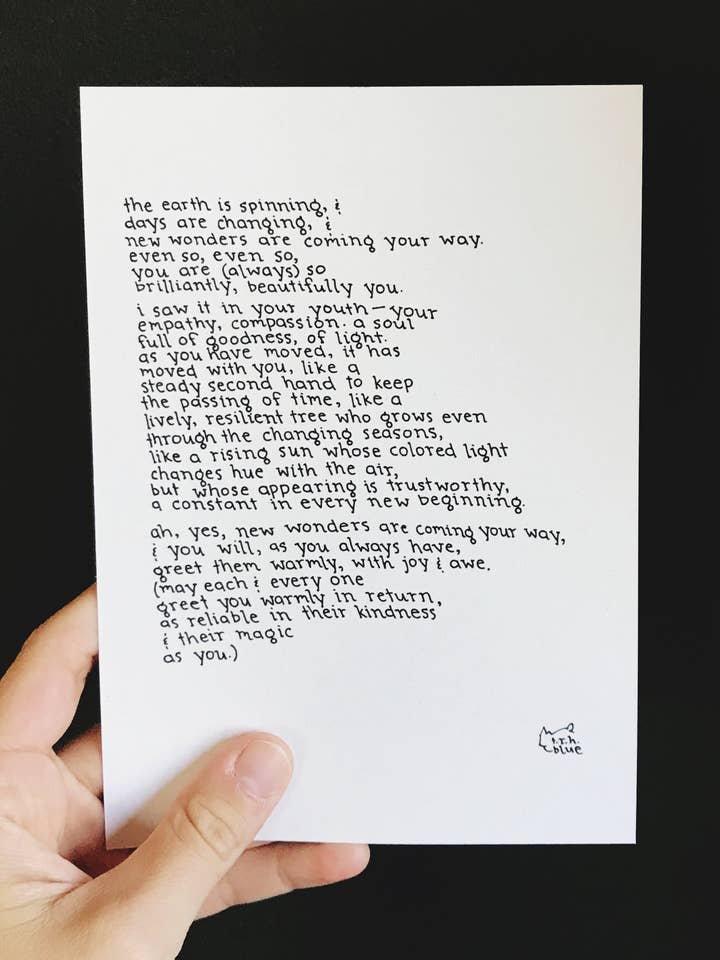 the earth is spinning, &
days are changing, &
new wonders are coming your way.
even so, even so,
you are (always) so
brilliantly, beautifully you.
i saw it in your youth—your
empathy, compassion. a soul
full of goodness, of light.
as you have moved, it has
moved with you, like a
steady second hand to keep
the passing of time, like a
lively, resilient tree who grows even
through the changing seasons,
like a rising sun whose colored light
changes hue with the air,
but whose appearing is trustworthy,
a constant in every new beginning.
ah, yes, new wonders are coming your way,
& you will, as you always have,
greet them warmly, with joy & awe.
(may each & every one
greet you warmly in return,
as reliable in their kindness
& their magic
as you.)
t.r.h.
blue